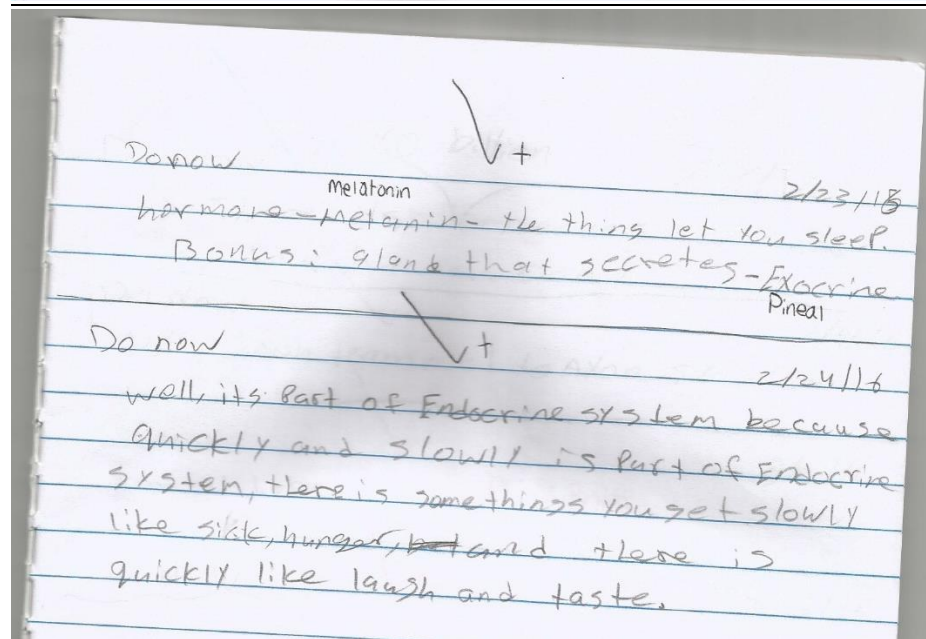 +
Do now
2/23/16
Melatonin
hormone - Melanin - the thing let you sleep.
Bonus: gland that secretes - Exocrine
Pineal
+
Do now
2/24/16
well, its Part of Endocrine system because
quickly and slowly is Part of Endocrine
system, there is some things you get slowly
like sick, hunger, and there is
quickly like laugh and taste.